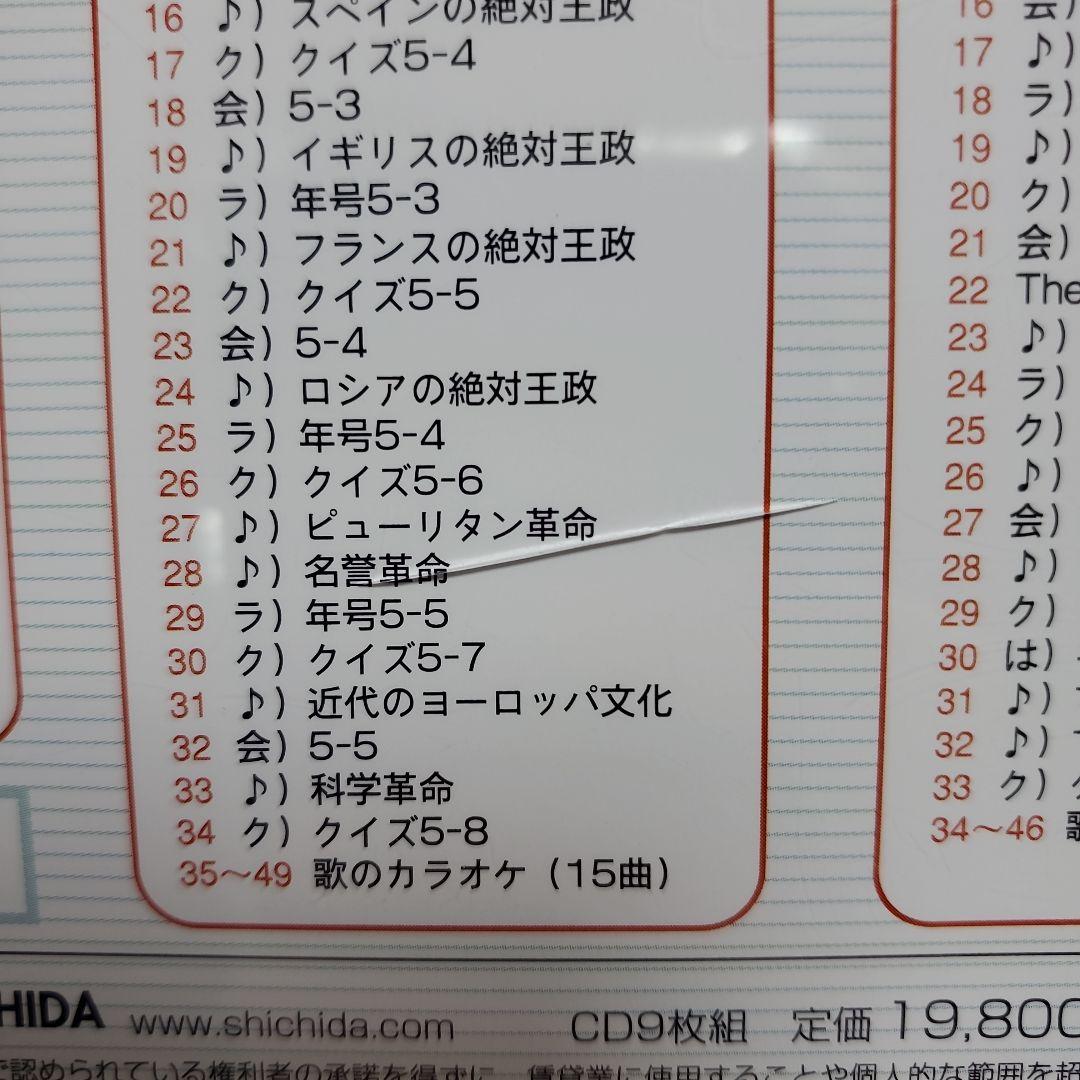 16 ♪) スペインの絶対王政
17 ク) クイズ5-4
18 会) 5-3
19 ♪) イギリスの絶対王政
20 ラ) 年号5-3
21 ♪) フランスの絶対王政
22 ク) クイズ5-5
23 会) 5-4
24 ♪) ロシアの絶対王政
25 ラ) 年号5-4
26 ク) クイズ5-6
27 ♪) ピューリタン革命
28 ♪) 名誉革命
29 ラ) 年号5-5
30 ク) クイズ5-7
31 ♪) 近代のヨーロッパ文化
32 会) 5-5
33 ♪) 科学革命
34 ク) クイズ5-8
35～49 歌のカラオケ（15曲）
16 会)
17 ♪)
18 ラ)
19 ♪)
20 ク)
21 会)
22 The
23 ♪)
24 ラ)
25 ク)
26 ♪)
27 会)
28 ♪)
29 ク)
30 は)
31 ♪)
32 ♪)
33 ク)
34～46 歌
HIDA www.shichida.com CD9枚組 定価 19,800
で認められている権利者の承諾を得ずに、賃貸業に使用することや個人的な範囲を超